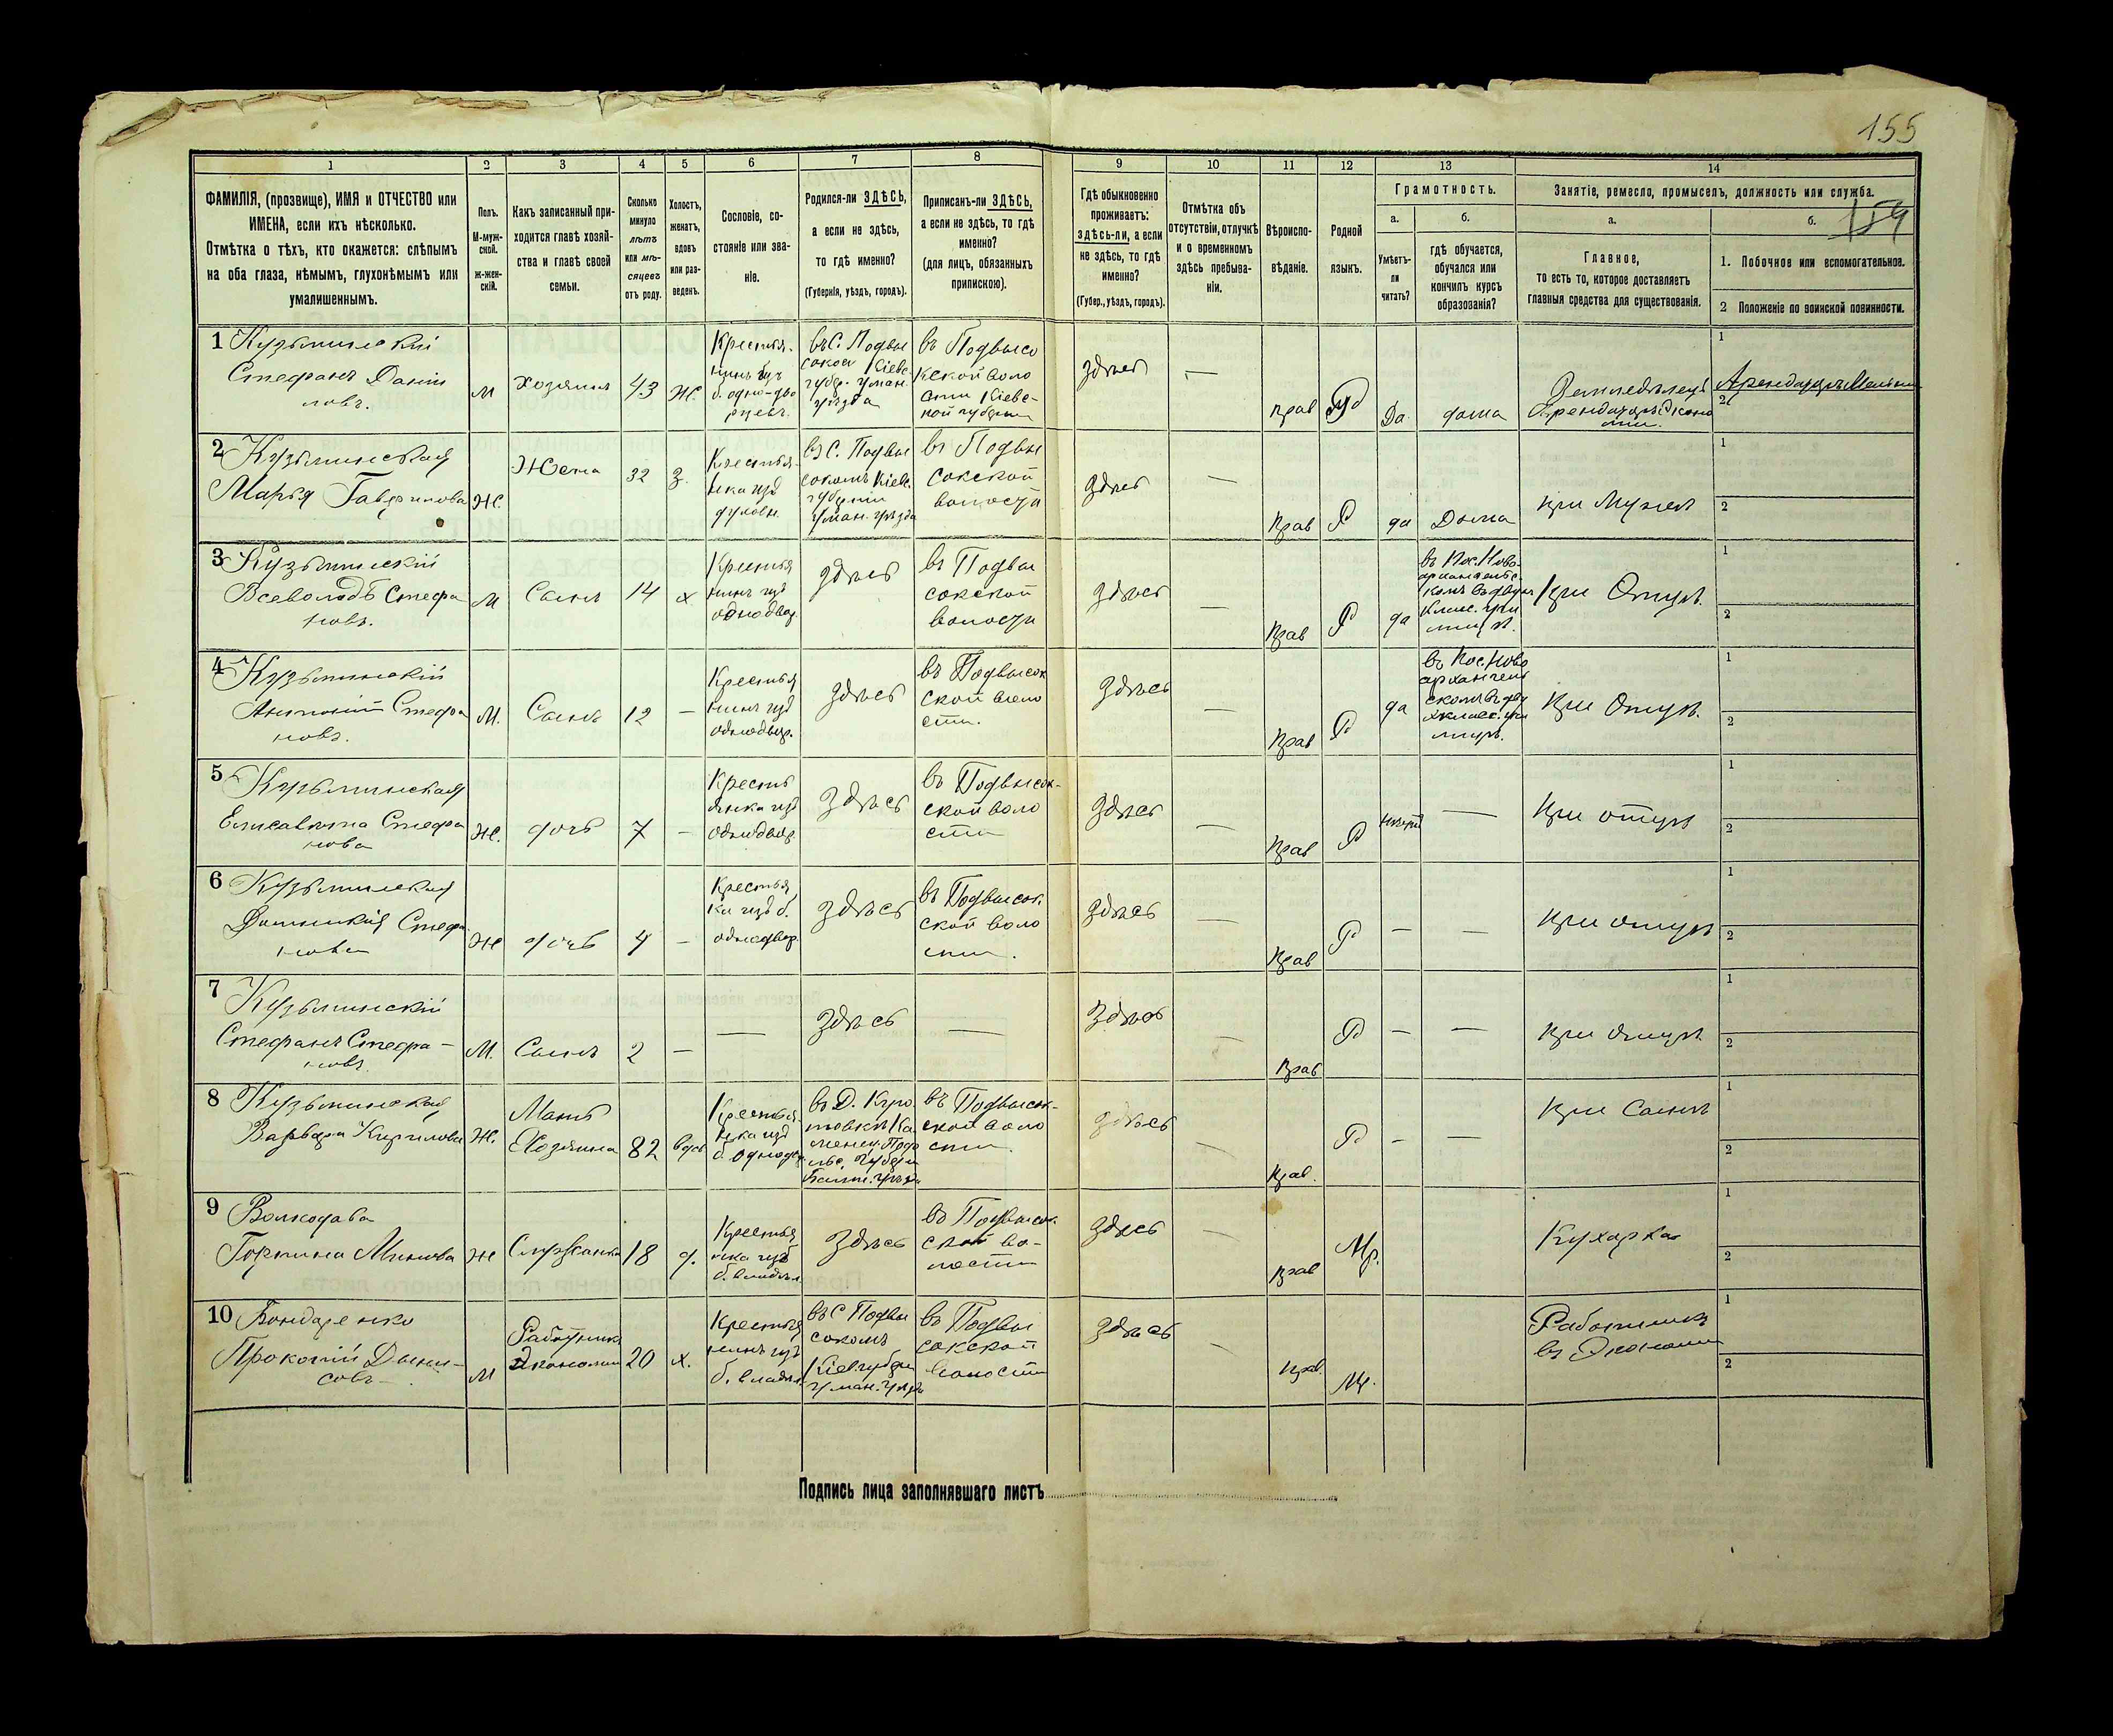 155
1 2 3 4 5 6 7 8 9 10 11 12 13 14
ФАМИЛІЯ, (прозвище), ИМЯ и ОТЧЕСТВО или
ИМЕНА, если ихъ нѣсколько.
Отмѣтка о тѣхъ, кто окажется: слѣпымъ
на оба глаза, нѣмымъ, глухонѣмымъ или
умалишеннымъ.
Полъ.
М-муж-
ской.
Ж-жен-
скій.
Какъ записанный при-
ходится главѣ хозяй-
ства и главѣ своей
семьи.
Сколько
минуло
лѣтъ
или мѣ-
сяцевъ
отъ роду.
Холостъ,
женатъ,
вдовъ
или раз-
веденъ.
Сословіе, со-
стояніе или зва-
ніе.
Родился-ли ЗДѢСЬ,
а если не здѣсь,
то гдѣ именно?
(Губернія, уѣздъ, городъ).
Приписанъ-ли ЗДѢСЬ,
а если не здѣсь, то гдѣ
именно?
(для лицъ, обязанныхъ
припискою).
Гдѣ обыкновенно
проживаетъ:
здѣсь-ли, а если
не здѣсь, то гдѣ
именно?
(Губер., уѣздъ, городъ).
Отмѣтка объ
отсутствіи, отлучкѣ
и о временномъ
здѣсь пребыва-
ніи.
Вѣроиспо-
вѣданіе.
Родной
языкъ.
Грамотность.
а.
Умѣетъ-
ли
читать?
б.
гдѣ обучается,
обучался или
кончилъ курсъ
образованія?
Занятіе, ремесло, промыселъ, должность или служба.
а.
Главное,
то есть то, которое доставляетъ
главныя средства для существованія.
б.
1. Побочное или вспомогательное.
2 Положеніе по воинской повинности.
1 Кузьминскій
Стефанъ Даніи
ловъ.
М
Хозяинъ
43
Ж.
Крестья-
нинъ изъ
б. одно-дво
рцевъ.
въ С. Подвы
сокомъ Кіевс.
губер. Уман.
уѣзда
въ Подвысо
кской воло
сти Кіевс-
кой губерніи
здѣсь
—
Прав
Р
Да
дома
Земледѣлецъ
Арендаторъ Эконо
міи.
1
2
2 Кузьминская
Марья Гаврилова
Ж.
Жена
32
З.
Крестья-
нка изъ
духовн.
въ С. Подвы
сокомъ Кіевс.
губерніи
Уман. уѣзда
въ Подвы
сокской
волости
здѣсь
—
Прав
Р
да
Дома
при Мужѣ
1
2
3 Кузьминскій
Всеволодъ Стефа
новъ.
М
Сынъ
14
х
Крестья
нинъ изъ
однодвор.
здѣсь
въ Подвы
сокской
волости
здѣсь
—
Прав
Р
да
въ Пос. Ново-
архангельс-
комъ въ двух
класс. учи
лищѣ.
при Отцѣ.
1
2
4 Кузьминскій
Антоній Стефа
новъ.
М.
Сынъ
12
—
Крестья
нинъ изъ
однодвор.
здѣсь
въ Подвысок
ской воло
сти.
здѣсь
—
Прав
Р
да
въ Пос. Ново
архангель
скомъ въ дву
хклас. учи
лищѣ.
при Отцѣ.
1
2
5 Кузьминская
Елисавета Стефа
нова
Ж.
дочь
7
—
Кресть
янка изъ
однодвор.
здѣсь
въ Подвысок-
ской воло
сти
здѣсь
—
Прав
Р
—
при отцѣ
1
2
6 Кузьминская
Домникія Стефа
нова
Ж
дочь
4
—
Крестья
нка изъ б.
однодвор.
здѣсь
въ Подвысок.
ской воло
сти.
здѣсь
—
Прав
Р
—
—
при отцѣ
1
2
7 Кузьминскій
Стефанъ Стефа-
новъ.
М.
Сынъ
2
—
—
здѣсь
—
здѣсь
—
Прав
Р
—
—
при отцѣ
1
2
8 Кузьминская
Варвара Кирилова
Ж.
Мать
Хозяина
82
вдов
Крестья-
нка изъ
б. Однодв.
въ Подвысок-
ской воло
сти.
здѣсь
—
Прав.
Р
—
—
при Сынѣ
1
2
9 Волкодава
Горпина Минова
Ж
Служанка
18
д.
Крестья
нка изъ
б. владѣл.
здѣсь
въ Подвысок.
ской во-
лости
здѣсь
—
Прав
Мр.
Кухарка
1
2
10 Бондаренко
Прокопій Дени-
совъ
М
Работникъ
Экономіи
20
х.
Крестья
нинъ изъ
б. владѣл.
въ С Подвы
сокомъ
Кіев губерн
Уман. уѣзд
въ Подвы
сокской
волости
здѣсь
—
Прав.
Мр.
Работникъ
въ Экономіи
1
2
Подпись лица заполнявшаго листъ